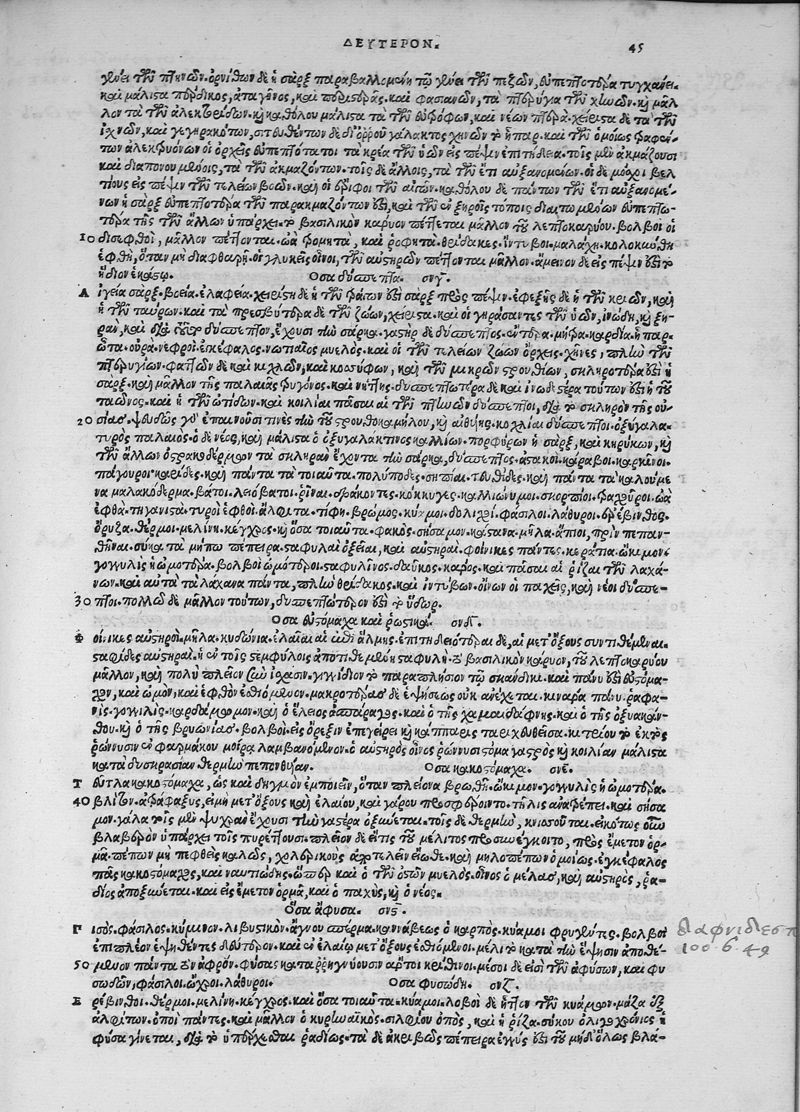 ΔΕΥΤΕΡΟΝ. 45
γένει τῶν πτηνῶν. ὀρνίθων δὲ ἡ σὰρξ παραβαλλομένη τῷ γένει τῶν πεζῶν, εὐπεπτοτέρα τυγχάνει.
καὶ μάλιστα πέρδικος, ἀταγῆνος, καὶ περιστερᾶς. καὶ φασιανῶν, τὰ πτερύγια τῶν χηνῶν. καὶ μᾶλ
λον τὰ τῶν ἀλεκτορίδων. καὶ καθόλου μάλιστα τὰ τῶν εὐτρόφων, καὶ νέων πτερά. χείριστα δὲ τὰ τῶν
ἰσχνῶν, καὶ γεγηρακότων, σιτευθέντων δὲ δι' ὀρροῦ γάλακτος χηνῶν τὸ ἧπαρ. καὶ τῶν ὁμοίως τραφέν
των ἀλεκτρυόνων οἱ ὄρχεις εὐπεπτότατοι τὰ κρέα τῶν ὑῶν εἰς πέψιν ἐπιτήδεια. τοῖς μὲν ἀκμάζουσι
καὶ διαπονουμένοις, τὰ τῶν ἀκμαζόντων. τοῖς δὲ ἄλλοις, τὰ τῶν ἔτι αὐξανομένων. οἱ δὲ μόσχοι βελ
τίους εἰς πέψιν τῶν τελείων βοῶν. καὶ οἱ ἔριφοι τῶν αἰγῶν. καθόλου δὲ πάντων τῶν ἔτι αὐξανομέ-
νων ἡ σὰρξ εὐπεπτοτέρα τῶν παρακμαζόντων ἐστὶ, καὶ τῶν ἐν ξηροῖς τόποις διαιτωμένων εὐπεπτο-
τέρα τῆς τῶν ἄλλων ὑπάρχει. τὸ βασιλικὸν κάρυον πέττεται μᾶλλον τοῦ λεπτοκαρύου. βολβοὶ οἱ
10 δίσεφθοι, μᾶλλον πέττονται. ὠὰ τρομητὰ, καὶ ῥοφητά. θρίδακες. ἴντυβοι. μαλάχη. κολοκύνθη
ἑφθὴ, ὅταν μὴ διαφθαρῇ. οἱ γλυκεῖς οἶνοι, τῶν αὐστηρῶν πέττονται μᾶλλον. ἄμεινον δὲ εἰς πέψιν ἐστὶ τὸ
ἥδιον ἑκάστῳ. Ὅσα δύσπεπτα. σνγ.
Α ἰγεία σὰρξ. βοεία. ἐλαφεία. χειρίστη δὲ ἡ τῶν τράγων ἐστὶ σὰρξ πρὸς πέψιν. ἐφεξῆς δὲ ἡ τῶν κριῶν, καὶ
ἡ τῶν ταύρων. καὶ τὰ πρεσβύτερα δὲ τῶν ζώων, χείριστα. καὶ οἱ γηράσαντες τῶν ὑῶν, ἰνώδη, καὶ ξη-
ρὰν, καὶ διὰ τοῦτο δύσπεπτον, ἔχουσι τὴν σάρκα. γαστὴρ δὲ δύσπεπτος. ἔντερα. μήτρα. καρδία. ἧπαρ.
ὦτα. οὐρά. νεφροί. ἐγκέφαλος. νωτιαῖος μυελός. καὶ οἱ τῶν τελείων ζώων ὄρχεις. χῆνες, πλὴν τῶν
πτερυγίων. φαττῶν δὲ καὶ κιχλῶν, καὶ κοσσύφων, καὶ τῶν μικρῶν στρουθίων, σκληροτέρα ἐστὶ ἡ
σάρξ. καὶ μᾶλλον τῆς παλαιᾶς τρυγόνος. καὶ νήττης. δυσπεπτοτέρα δὲ καὶ ἰνωδεστέρα τούτων ἐστὶ ἡ τοῦ
ταῶνος. καὶ ἡ τῶν ὠτίδων. καὶ κοιλίαι πᾶσαι αἱ τῶν πτηνῶν δύσπεπτοι, διὰ τὸ σκληρὸν τῆς οὐ-
20 σίας. ψευδῶς γὰρ ἐπαινοῦσί τινες τὴν τοῦ στρουθοκαμήλου, καὶ αἰθυίης. κοχλίαι δύσπεπτοι. ὀξύγαλα.
τυρὸς παλαιός. ὁ δὲ νέος, καὶ μάλιστα ὁ ὀξυγαλάκτινος καλλίων. πορφύρων ἡ σὰρξ, καὶ κηρύκων, καὶ
τῶν ἄλλων ὀστρακοδέρμων τὰ σκληρὰν ἔχοντα τὴν σάρκα, δύσπεπτος. ἀστακοί. κάραβοι. καρκίνοι.
πάγουροι. καρίδες. καὶ πάντα τὰ τοιαῦτα. πολύποδες. σηπίαι. τευθίδες. καὶ πάντα τὰ καλούμε
να μαλακόδερμα. βάτοι. λειόβατοι. ῥῖναι. δράκοντες. κόκκυγες. καλλιώνυμοι. σκορπίοι. τράχουροι. ὠὰ
ἑφθά. τηγανιστά. τυροὶ ἑφθοί. ἄλφιτα. τίφη. βρῶμος. κύαμοι. δόλιχοι. φάσιλοι. λάθυροι. ἐρέβινθος.
ὄρυζα. θέρμοι. μελίνη. κέγχρος. καὶ ὅσα τοιαῦτα. φακός. σήσαμον. κάστανα. μῆλα. ἄπιοι, πρὶν πεπαν-
θῆναι. σῦκα τὰ μήπω πέπειρα. σταφυλαὶ ὀξεῖαι, καὶ αὐστηραί. φοίνικες πάντες. κεράτια. ὤκιμον.
γογγυλὶς ἡ ὠμοτέρα. βολβοὶ ὠμότεροι. σταφυλῖνος. δαῦκος. κάρος. καὶ πᾶσαι αἱ ῥίζαι τῶν λαχά-
νων. καὶ αὐτὰ τὰ λάχανα πάντα, πλὴν θρίδακος, καὶ ἰντύβων. οἴνων οἱ παχεῖς, καὶ νέοι δύσπε-
30 πτοι. πολλῷ δὲ μᾶλλον τούτων, δυσπεπτότερον ἐστὶ τὸ ὕδωρ.
Ὅσα εὐστόμαχα καὶ ῥωστικά. σνδ.
Φ οίνικες αὐστηροί. μῆλα. κυδώνια. ἐλαῖαι αἱ ἐπὶ ἅλμης. ἐπιτηδειότεραι δὲ, αἱ μετ' ὄξους συντιθέμεναι.
σταφίδες αὐστηραί. ἡ ἐν τοῖς στεμφύλοις ἀποτιθεμένη σταφυλή. τὸ βασιλικὸν κάρυον, τοῦ λεπτοκαρύου
μᾶλλον, καὶ πολὺ πλεῖον σὺν ἰσχάσιν. γιγγίδιον τὸ παραπλήσιον τῷ σκάνδικι. καὶ πάνυ ἐστὶ εὐστόμα-
χον, καὶ ὠμὸν, καὶ ἑφθὸν ἐσθιόμενον. μακροτέρας δὲ ἑψήσεως οὐκ ἀνέχεται. κινάρα πάνυ. ῥαφα-
νίς. γογγυλίς. καρδάμωμον. καὶ ὁ ἕλειος ἀσπάραγος. καὶ ὁ τῆς χαμαιδάφνης. καὶ ὁ τῆς ὀξυακάν-
θου. καὶ ὁ τῆς βρυωνίας. βολβοί. εἰς ὄρεξιν ἐπεγείρει καὶ κάππαρις ταριχευθεῖσα. κιτρίου τὸ ἐκτὸς
ῥώννυσιν ἐν φαρμάκου μοίρᾳ λαμβανόμενον. ὁ αὐστηρὸς οἶνος ῥώννυσι στόμα γαστρὸς καὶ κοιλίαν μάλιστα
κατὰ δυσκρασίαν θερμὴν πεπονθυῖαν. Ὅσα κακοστόμαχα. σνε.
Τ εῦτλα κακοστόμαχα, ὡς καὶ δηγμὸν ἐμποιεῖν, ὅταν πλείονα βρωθῇ. ὤκιμον. γογγυλὶς ἡ ὠμοτέρα.
40 βλίτον. ἀτράφαξυς, εἰ μὴ μετ' ὄξους καὶ ἐλαίου, καὶ γάρου προσφέροιντο. τῆλις ἀνατρέπει. καὶ σήσα
μον. γάλα τοῖς μὲν ψυχρὰν ἔχουσι τὴν γαστέρα ὀξύνεται. τοῖς δὲ θερμὴν, κνισοῦται. εἰκότως οὖν
βλαβερὸν ὑπάρχει τοῖς πυρέττουσι. πλεῖον δὲ εἴ τις τοῦ μέλιτος προσενέγκοιτο, πρὸς ἔμετον ὁρ-
μᾷ. πέπων μὴ πεφθεὶς καλῶς, χολερικοὺς ἀποτελεῖν εἴωθε. καὶ μηλοπέπων ὁμοίως. ἐγκέφαλος
πᾶς κακοστόμαχος, καὶ ναυτιώδης. ὥσπερ καὶ ὁ τῶν ὀστῶν μυελός. οἶνος ὁ μέλας, καὶ αὐστηρὸς, ῥα-
δίως ἀποξύνεται. καὶ εἰς ἔμετον ὁρμᾷ, καὶ ὁ παχὺς, καὶ ὁ νέος.
Ὅσα ἄφυσα. σνϛ.
Π ισός. φάσιλος. κύμινον. λιβυστικόν. ἄγνου σπέρμα. καννάβεως ὁ καρπός. κύαμοι φρυγέντες. βολβοὶ
ἐπιπλέον ἑψηθέντες δεύτερον. καὶ ἐν ἐλαίῳ μετ' ὄξους ἐσθιόμενοι. μέλι τὸ κατὰ τὴν ἕψησιν ἀποθέ-
50 μενον πάντα τὸν ἀφρόν. φύσας καταρρηγνύουσιν ἄρτοι κρίθινοι. μέσοι δέ εἰσι τῶν ἀφύσων, καὶ φυ
σωδῶν, φάσιλοι. ὦχροι. λάθυροι. Ὅσα φυσώδη. σνζ.
Ε ρέβινθοι. θέρμοι. μελίνη. κέγχρος. καὶ ὅσα τοιαῦτα. κύαμοι. λοβοὶ δὲ ἧττον τῶν κυάμων. μάζα ἐξ
ἀλφίτων. ὀποὶ πάντες. καὶ μᾶλλον ὁ κυρηναϊκός. σιλφίου ὀπὸς, καὶ ἡ ῥίζα. σύκου ὀλιγοχρόνιος ἡ
φύσα γίνεται, διὰ τὸ ὑπέρχεσθαι ῥᾳδίως. τὰ δὲ ἀκριβῶς πέπειρα ἐγγύς ἐστι τοῦ μηδ' ὅλως βλα-
100. 6. 49